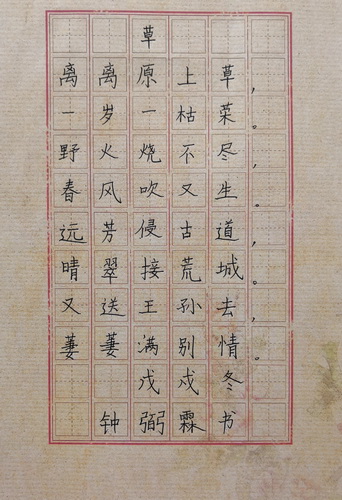 草
离离原上草，
一岁一枯荣。
野火烧不尽，
春风吹又生。
远芳侵古道，
晴翠接荒城。
又送王孙去，
萋萋满别情。
戊戌冬
钟弼霖书